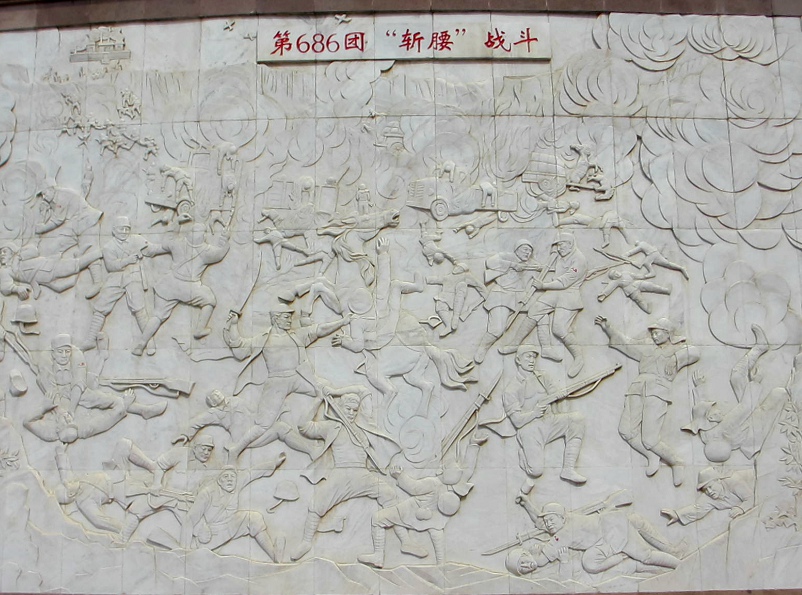 第686团 “斩腰” 战斗